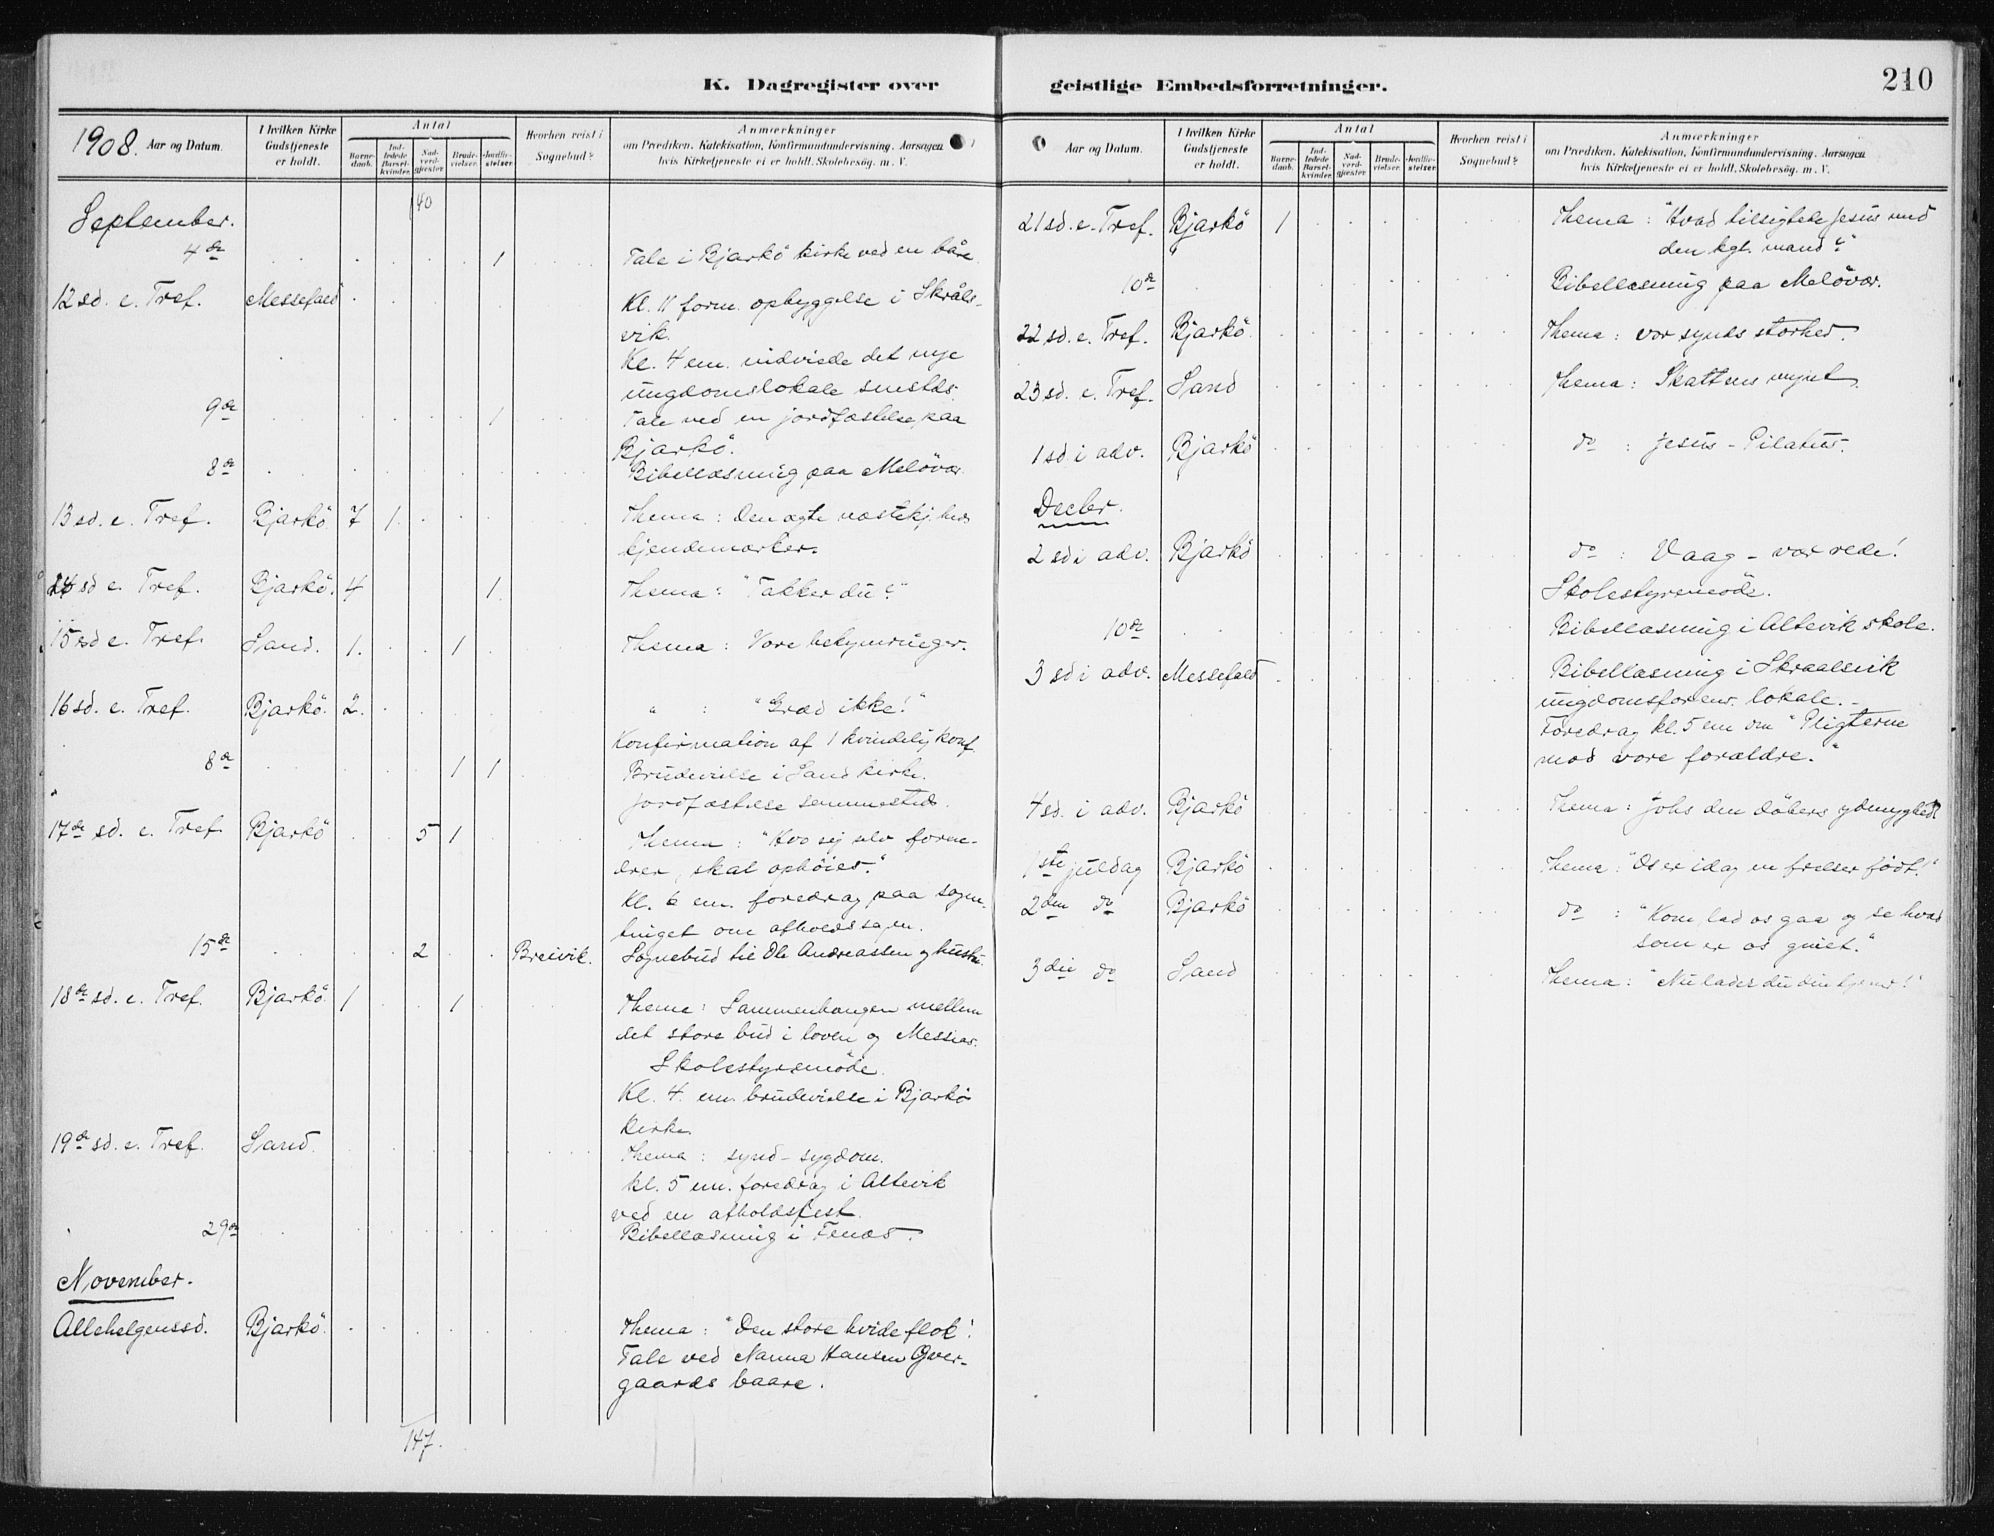 K. Dagregister over
1908. Aar og Datum. I hvilken Kirke Gudstjeneste er holdt. Antal Barnedaab. Indledede Barselkvinder. Nadverdgjæster Brudevielser. Jordfæstelser Hvorhen reist i Sognebud? Anmærkninger om Prædiken. Katekisation, Konfirmandundervisning. Aarsagen hvis Kirketjeneste ei er holdt. Skolebesøg. m. V.
September. 140
4de 1 Tale i Bjarkö kirke ved en båre
12 sd. e. Tref. Messefald Kl. 11 form. opbyggelse i Skråls-
vik.
Kl. 4 em. indviede det nye
ungdomslokale smstds.
9de 1 Tale ved en jordfæstelse paa
Bjarkö.
8de Bibellæsning paa Meløvær
13 sd. e. Tref. Bjarkö 7 1 Thema: Den ægte næstekj.heds
kjendemærker.
14 sd e. Tref. Bjarkö. 4 1 Thema: "Takker du?"
15 sd e. Tref. Sand. 1. 1 Thema: Vore bekymringer.
16 sd. e. Tref. Bjarkö. 2. " : "Græd ikke!"
Konfirmation af 1 kvindelig konf.
8de 1 1 Brudevielse i Sand kirke.
Jordfæstelse sammesteds.
17de sd. e. Tref. Bjarkö 5 1 Thema: "Hvo sig selv forne-
drer, skal ophöies."
Kl. 6 em. foredrag paa sogn.
tinget om afholdssagen.
15de 2 Breivik. Sognebud til Ole Andreassen og hustru.
18de sd. e. Tref. Bjarkö. 1 1 Thema: Sammenhængen mellem
det store bud i loven og Messias.
Skolestyremöde.
Kl. 4 em. brudevielse i Bjarkö
kirke.
19de sd. e. Tref. Sand. Thema: synd – sygdom.
kl. 5 em. foredrag i Altevik
ved en afholdsfest.
29de Bibellæsning i Fenes.
November.
Allehelgenssd. Bjarkö. Thema: "Den store hvide flok!
Tale ved Nanna Hansen Øver-
gaards baare.
147.
geistlige Embedsforretninger. 210
Aar og Datum. I hvilken Kirke Gudstjeneste er holdt. Antal Barnedaab. Indledede Barselkvinder. Nadverdgjæster Brudevielser. Jordfæstelser Hvorhen reist i Sognebud? Anmærkninger om Prædiken. Katekisation, Konfirmandundervisning. Aarsagen hvis Kirketjeneste ei er holdt. Skolebesøg. m. V.
21 sd. e. Tref. Bjarkö 1 Thema: "Hvad tilsigtede Jesus med
den kgl. mand?"
10de Bibellæsning paa Meløvær.
22 sd. e. Tref. Bjarkö. Thema: vor synds storhed.
23 sd. e. Tref. Sand Thema: Skattens mynt.
1 sd. i adv. Bjarkö do : Jesus – Pilatus.
Decbr.
2 sd i adv. Bjarkö do : Vaag – vær rede!
Skolestyremöde.
10de Bibellæsning i Altevik skole.
3 sd i adv. Messefald Bibellæsning i Skraalsvik
ungdomsforens. lokale. –
Foredrag kl. 5 em om "Pligterne
mod vore forældre."
4 sd. i adv. Bjarkö Thema: Johs den døbers ydmyghed
1ste juledag Bjarkö Thema: "Os er idag en frelser født!"
2den do Bjarkö do : "Kom, lad os gaa og se hvad
som er os givet."
3die do Sand Thema: "Nu lader du din tjener!"